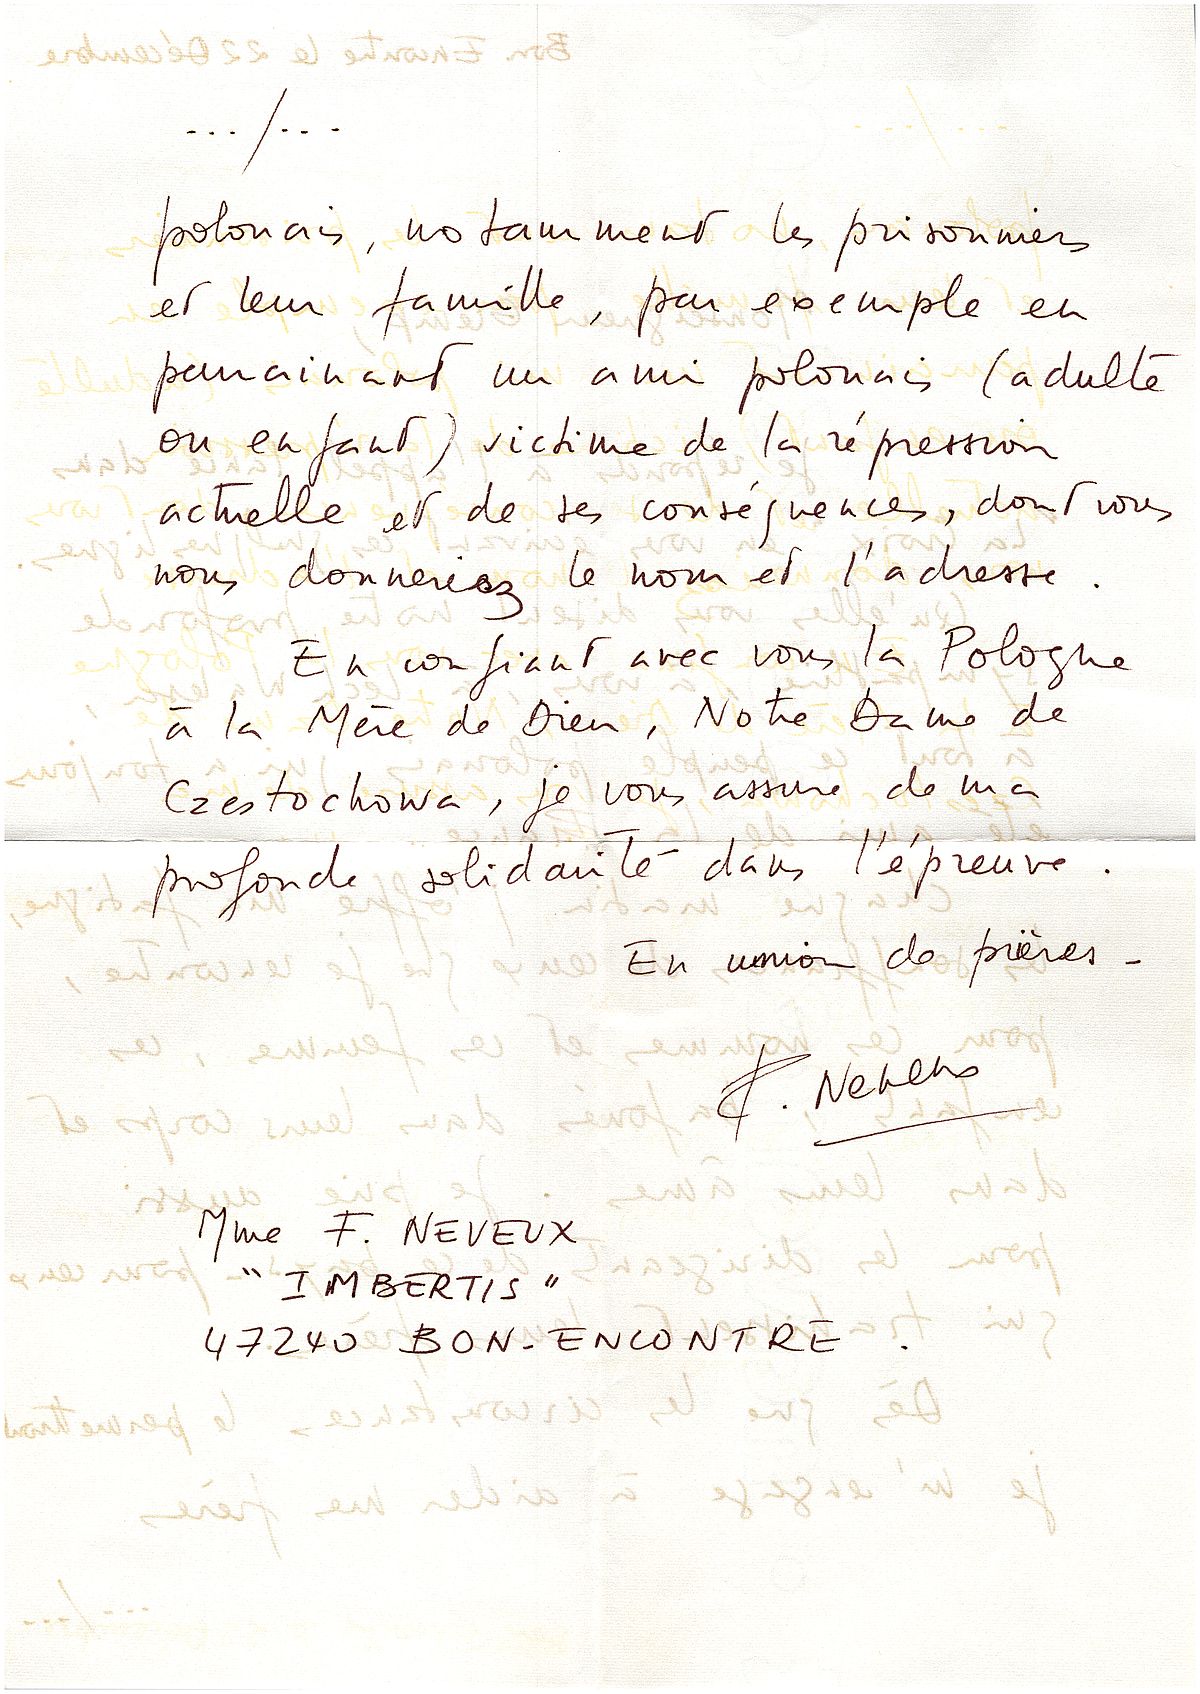 .../...
polonais, notamment les prisonniers
et leur famille, par exemple en
parrainant un ami polonais (adulte
ou enfant) victime de la répression
actuelle et de ses conséquences, dont vous
nous donneriez le nom et l'adresse.
En confiant avec vous la Pologne
à la Mère de Dieu, Notre Dame de
Czestochowa, je vous assure de ma
profonde solidarité dans l'épreuve.
En union de prières -
F. Neveux
Mme F. NEVEUX
"IMBERTIS"
47240 BON-ENCONTRE.